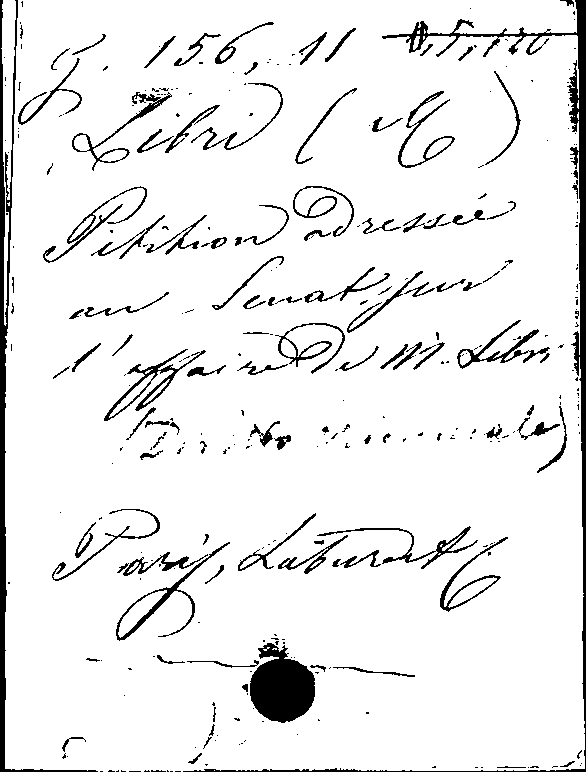 J. 156, 11 B,5,120
Libri (M)
Pitition adressée
au Senat sur
l'affaire de M. Libri
(Diritto criminale)
Paris, Lahure et C